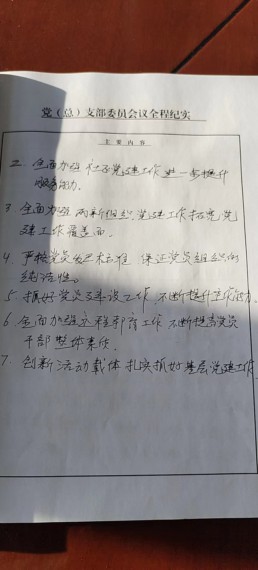 党（总）支部委员会议全程纪实
主要内容
2. 全面加强社区党建工作进一步提升
服务能力.
3. 全面加强两新组织党建工作拓宽党
建工作覆盖面.
4. 严格党员发展标准 保证党员组织的
纯洁性。
5. 抓好党员建设工作 不断提升工作能力.
6. 全面加强教育工作 不断提高党员
干部整体素质.
7. 创新活动载体 扎实抓好基层党建工作